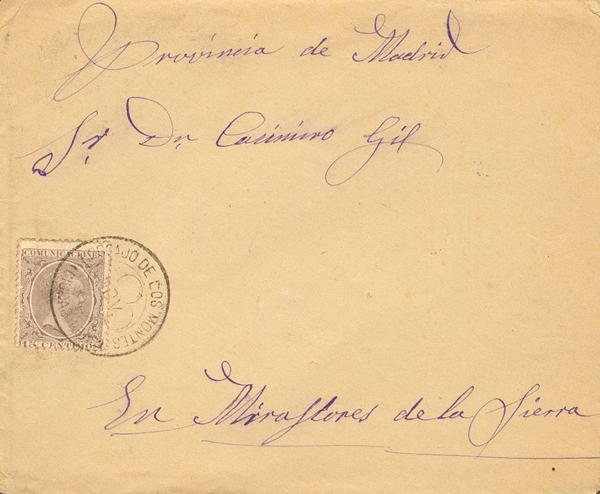 Provincia de Madrid
Sr. Dn. Casimiro Gil
COMUNICACIONES
15 CENT
DE LOS MONTES
En Miraflores de la Sierra